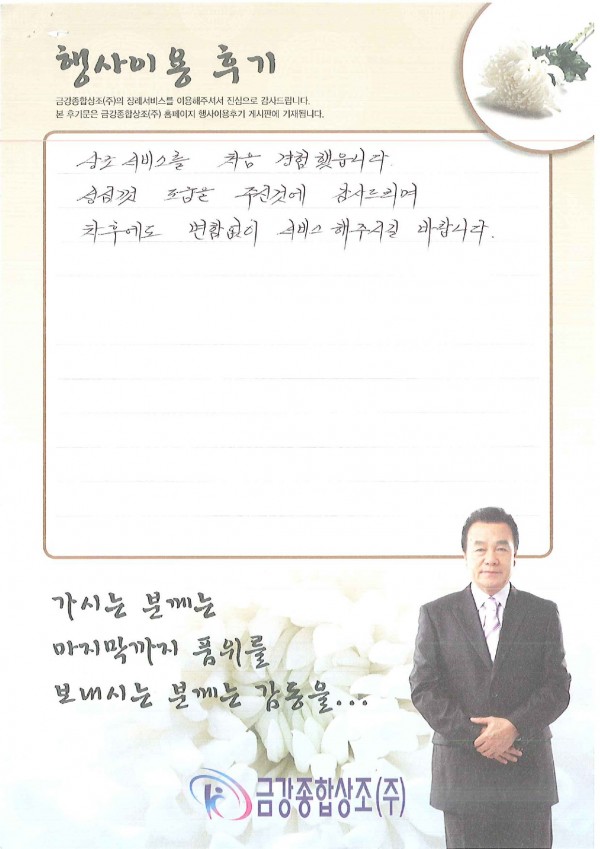 행사이용 후기
금강종합상조(주)의 장례서비스를 이용해주셔서 진심으로 감사드립니다.
본 후기문은 금강종합상조(주) 홈페이지 행사이용후기 게시판에 기재됩니다.
상조 서비스를 처음 경험했읍니다.
성심껏 도움을 주신것에 감사드리며
차후에도 변함없이 서비스 해주시길 바랍니다.
가시는 분께는
마지막까지 품위를
보내시는 분께는 감동을...
금강종합상조(주)